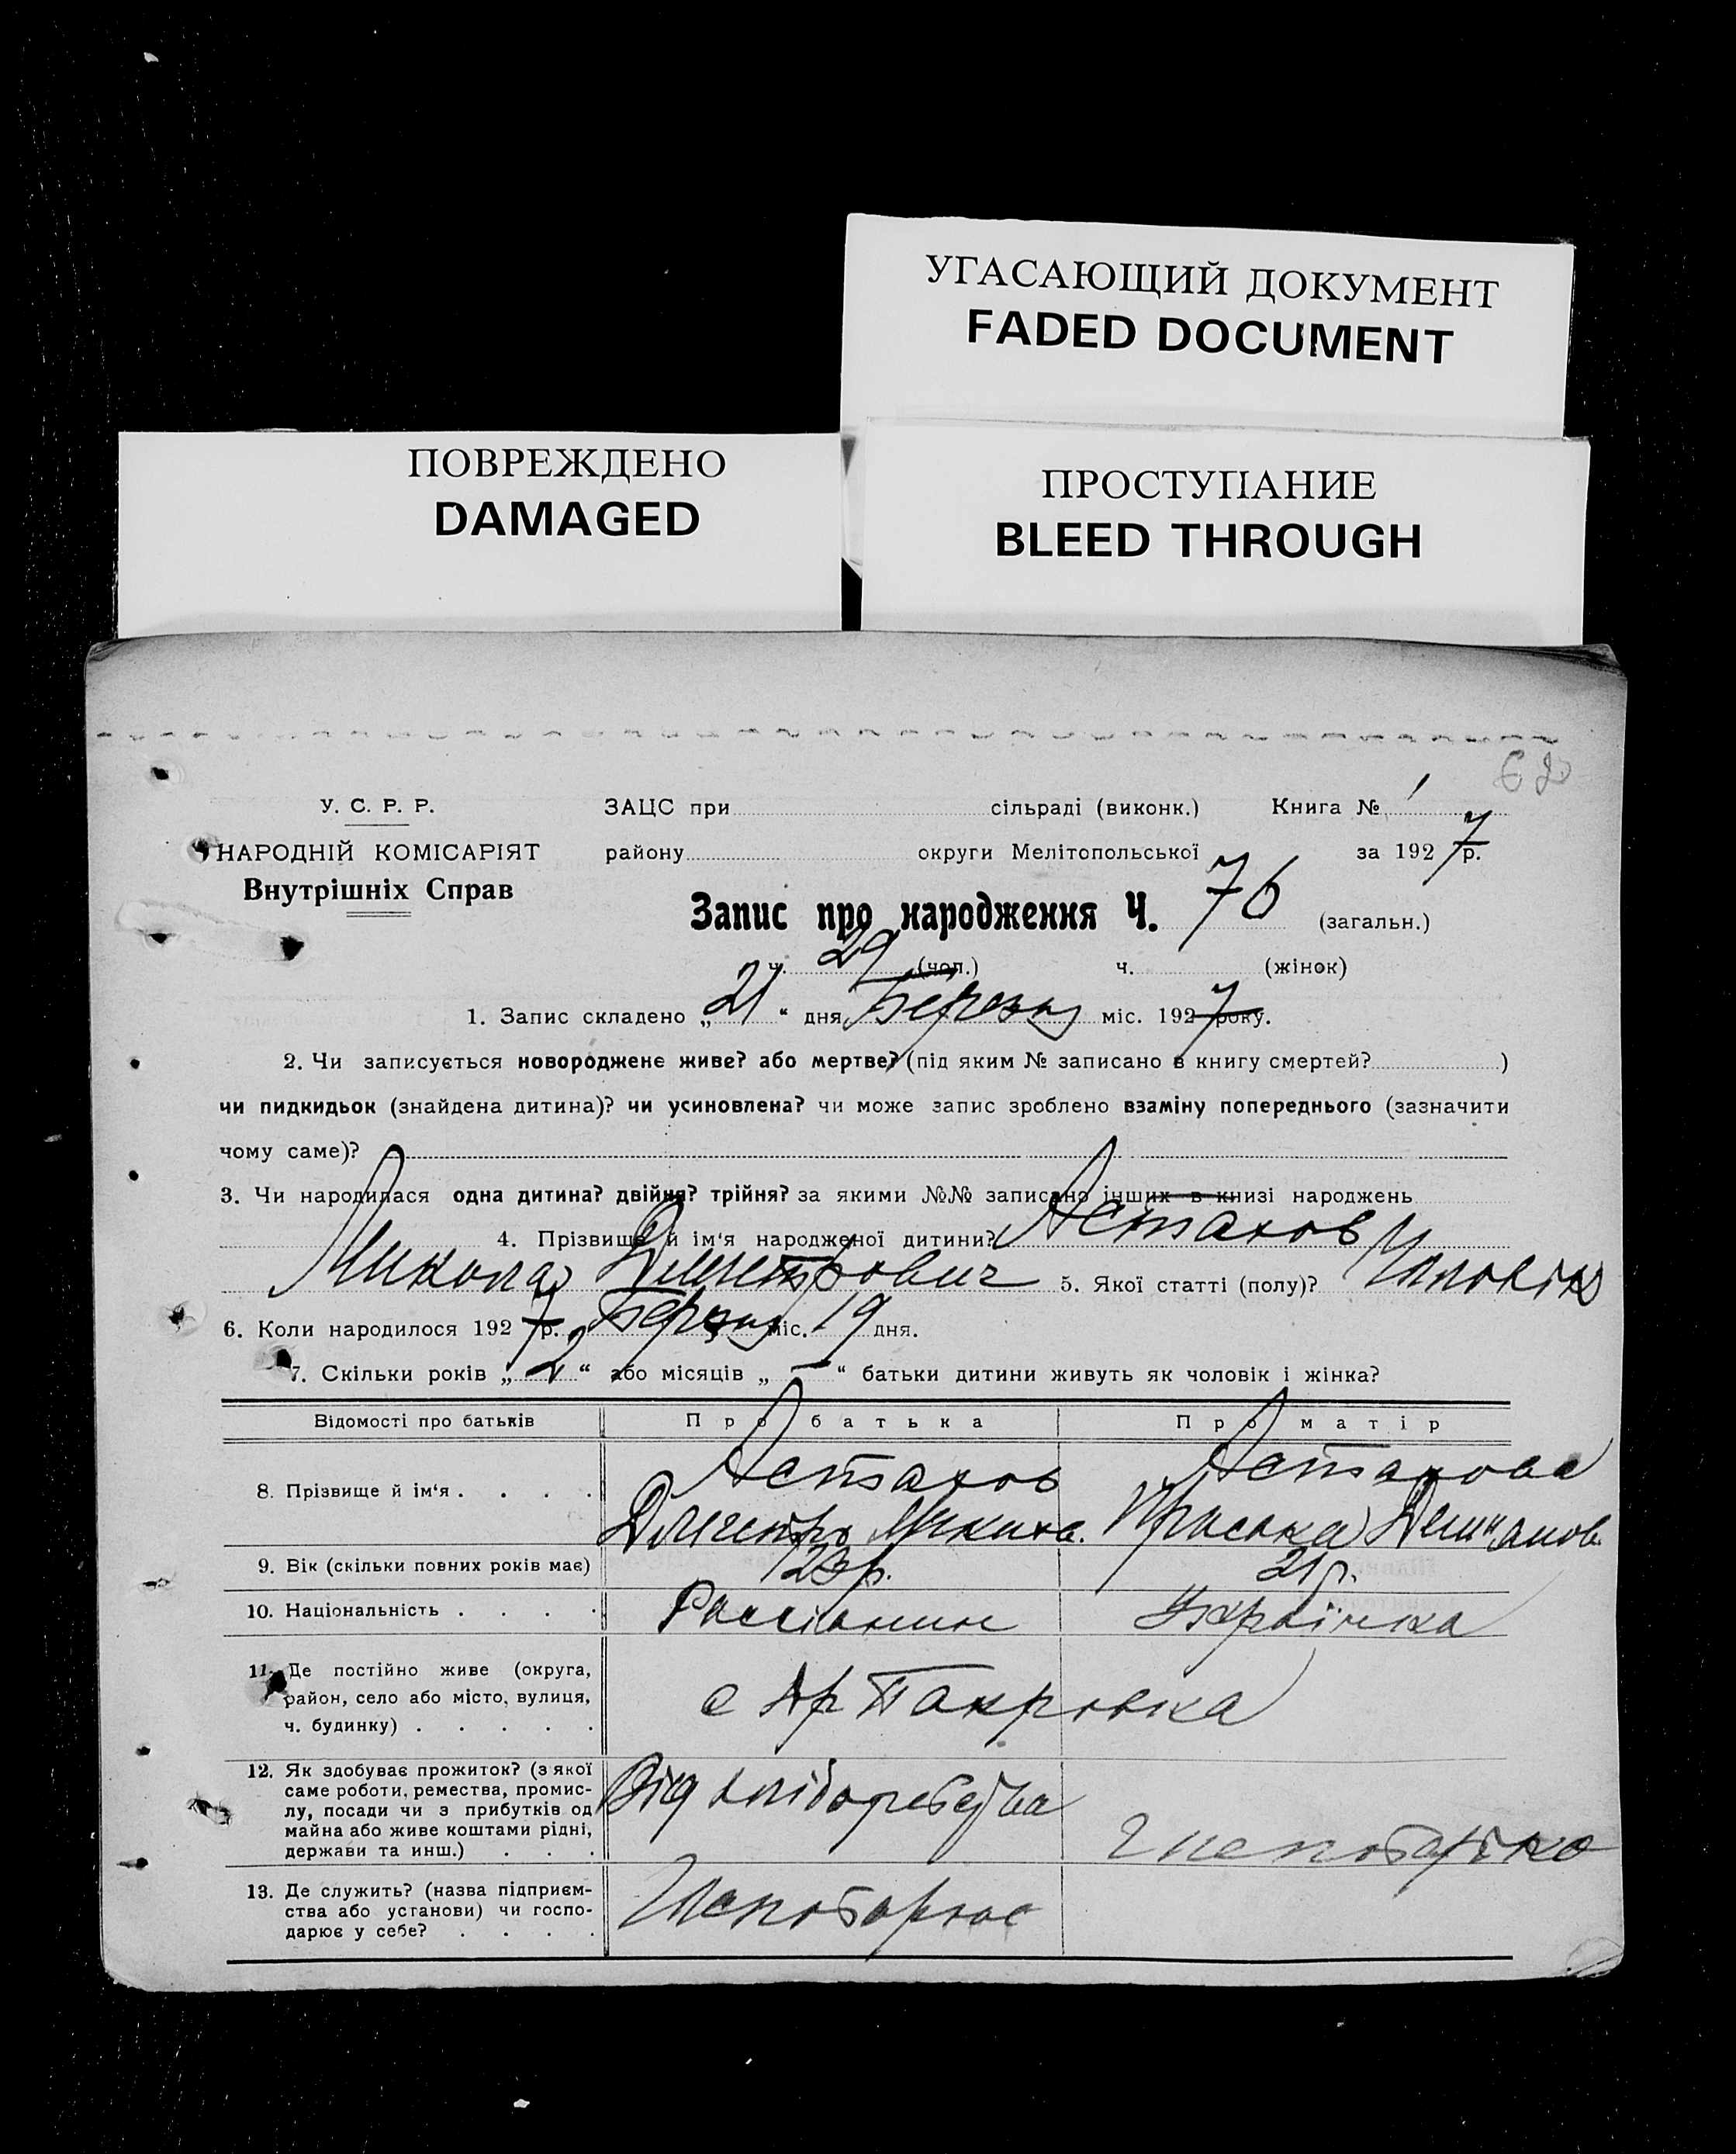 УГАСАЮЩИЙ ДОКУМЕНТ
FADED DOCUMENT
ПОВРЕЖДЕНО
DAMAGED
ПРОСТУПАНИЕ
BLEED THROUGH
62
У. С. Р. Р. ЗАЦС при сільраді (виконк.) Книга № 1
НАРОДНІЙ КОМІСАРІЯТ району округи Мелітопольської за 1927 р.
Внутрішніх Справ
Запис про народження Ч. 76 (загальн.)
ч. 29 (чол.) ч. (жінок)
1. Запис складено „21“ дня Березня міс. 1927 року.
2. Чи записується новороджене живе? або мертве? (під яким № записано в книгу смертей? )
чи пидкидьок (знайдена дитина)? чи усиновлена? чи може запис зроблено взаміну попереднього (зазначити
чому саме)?
3. Чи народилася одна дитина? двійня? трійня? за якими №№ записано інших в книзі народжень
4. Прізвище й ім‘я народженої дитини? Астахов
Микола Дмитрович 5. Якої статті (полу)? Чоловік
6. Коли народилося 1927 р. Березня міс. 19 дня.
7. Скільки років „2“ або місяців „—“ батьки дитини живуть як чоловік і жінка?
Відомості про батьків Про батька Про матір
8. Прізвище й ім‘я . . . . Астахов Астахова
Дмитро Приська
9. Вік (скільки повних років має) 23 р. 21 р.
10. Національність . . . . Россіянин Українка
11. Де постійно живе (округа,
район, село або місто, вулиця,
ч. будинку) . . . . .
с Покровка
12. Як здобуває прожиток? (з якої
саме роботи, ремества, промис-
лу, посади чи з прибутків од
майна або живе коштами рідні,
держави та инш.) . . .
Від хліборобства
13. Де служить? (назва підприєм-
ства або установи) чи госпо-
дарює у себе? . . . .